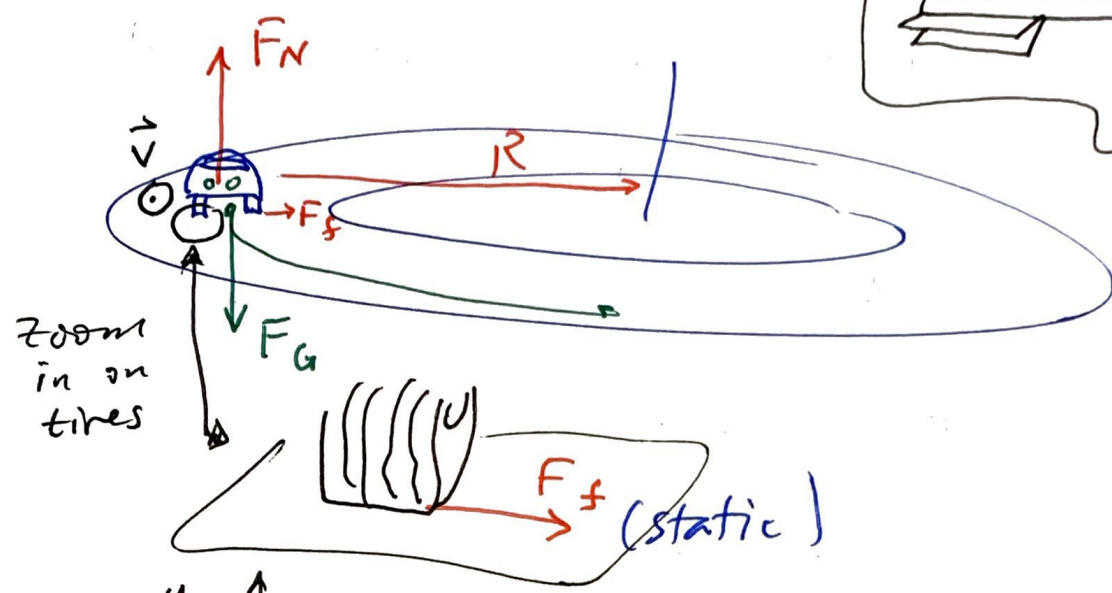 F_N
v⃗
R
F_f
F_G
zoom
in on
tires
F_f (static)